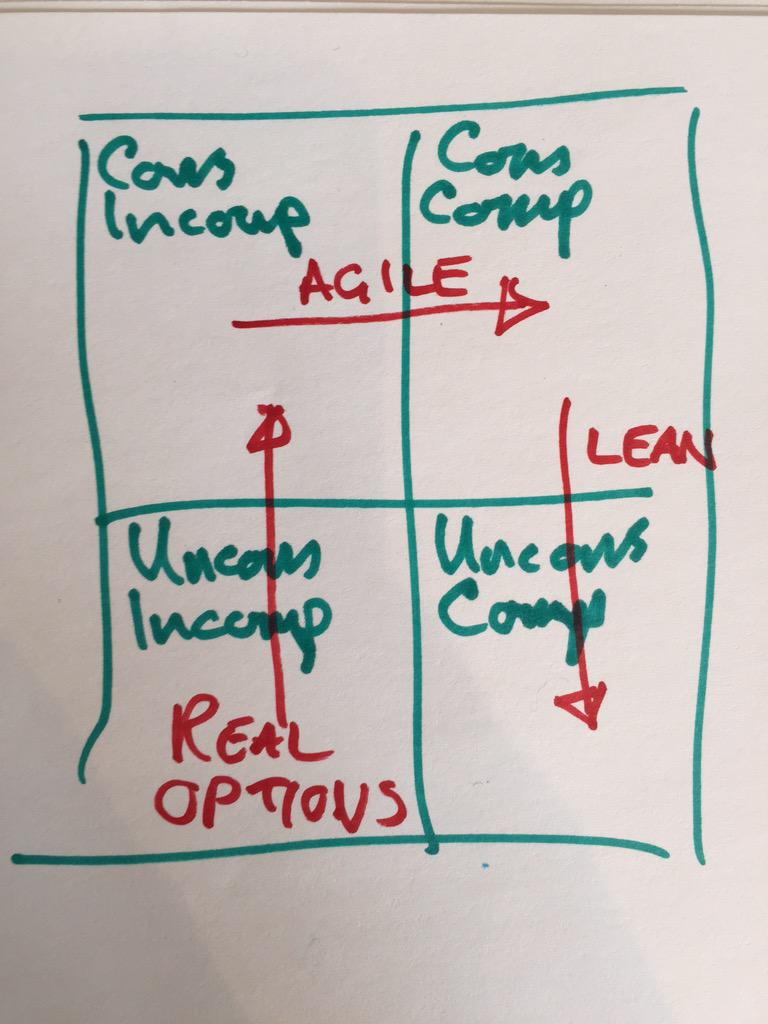 Cons
Incomp
Cons
Comp
AGILE
LEAN
Uncons
Incomp
Uncons
Comp
REAL
OPTIONS